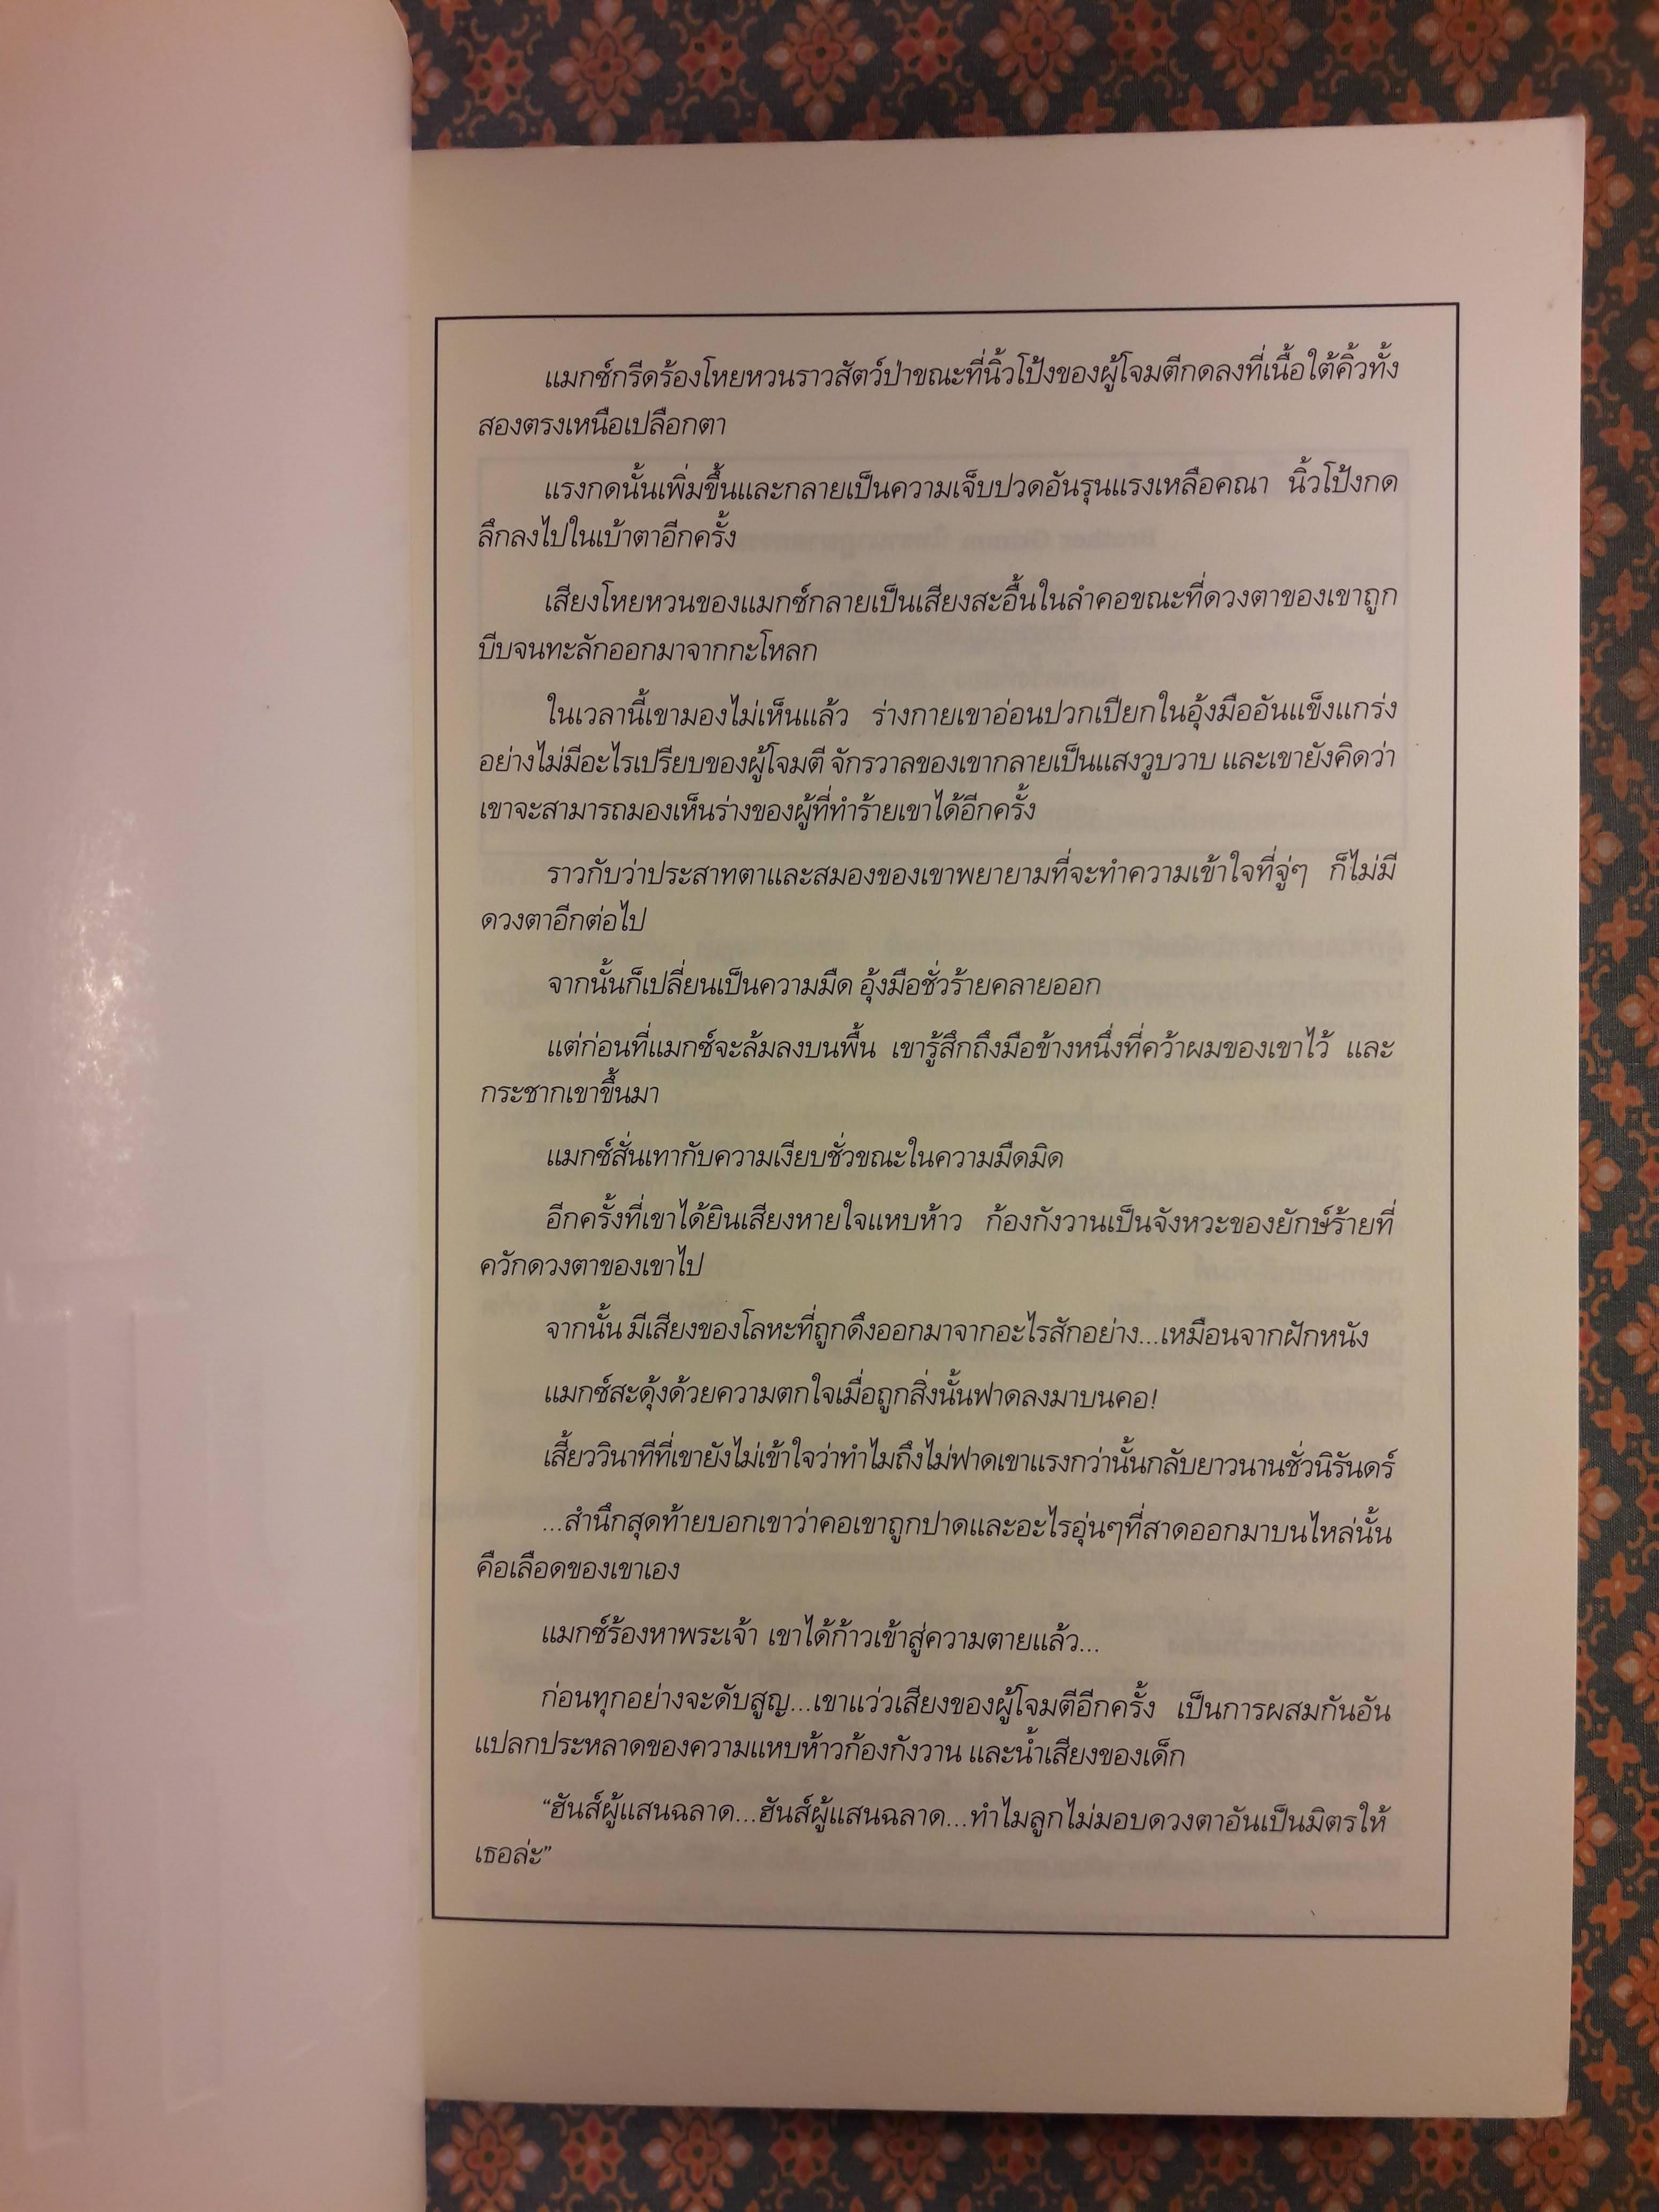 แมกซ์กรีดร้องโหยหวนราวสัตว์ป่าขณะที่นิ้วโป้งของผู้โจมตีกดลงที่เนื้อใต้คิ้วทั้ง
สองตรงเหนือเปลือกตา
แรงกดนั้นเพิ่มขึ้นและกลายเป็นความเจ็บปวดอันรุนแรงเหลือคณา นิ้วโป้งกด
ลึกลงไปในเบ้าตาอีกครั้ง
เสียงโหยหวนของแมกซ์กลายเป็นเสียงสะอื้นในลำคอขณะที่ดวงตาของเขาถูก
บีบจนทะลักออกมาจากกะโหลก
ในเวลานี้เขามองไม่เห็นแล้ว ร่างกายเขาอ่อนปวกเปียกในอุ้งมืออันแข็งแกร่ง
อย่างไม่มีอะไรเปรียบของผู้โจมตี จักรวาลของเขากลายเป็นแสงวูบวาบ และเขายังคิดว่า
เขาจะสามารถมองเห็นร่างของผู้ที่ทำร้ายเขาได้อีกครั้ง
ราวกับว่าประสาทตาและสมองของเขาพยายามที่จะทำความเข้าใจที่จู่ๆ ก็ไม่มี
ดวงตาอีกต่อไป
จากนั้นก็เปลี่ยนเป็นความมืด อุ้งมือชั่วร้ายคลายออก
แต่ก่อนที่แมกซ์จะล้มลงบนพื้น เขารู้สึกถึงมือข้างหนึ่งที่คว้าผมของเขาไว้ และ
กระชากเขาขึ้นมา
แมกซ์สั่นเทากับความเงียบชั่วขณะในความมืดมิด
อีกครั้งที่เขาได้ยินเสียงหายใจแหบห้าว ก้องกังวานเป็นจังหวะของยักษ์ร้ายที่
ควักดวงตาของเขาไป
จากนั้น มีเสียงของโลหะที่ถูกดึงออกมาจากอะไรสักอย่าง...เหมือนจากฝักหนัง
แมกซ์สะดุ้งด้วยความตกใจเมื่อถูกสิ่งนั้นฟาดลงมาบนคอ!
เสี้ยววินาทีที่เขายังไม่เข้าใจว่าทำไมถึงไม่ฟาดเขาแรงกว่านั้นกลับยาวนานชั่วนิรันดร์
...สำนึกสุดท้ายบอกเขาว่าคอเขาถูกปาดและอะไรอุ่นๆที่สาดออกมาบนไหล่นั้น
คือเลือดของเขาเอง
แมกซ์ร้องหาพระเจ้า เขาได้ก้าวเข้าสู่ความตายแล้ว...
ก่อนทุกอย่างจะดับสูญ...เขาแว่วเสียงของผู้โจมตีอีกครั้ง เป็นการผสมกันอัน
แปลกประหลาดของความแหบห้าวก้องกังวาน และน้ำเสียงของเด็ก
“ฮันส์ผู้แสนฉลาด...ฮันส์ผู้แสนฉลาด...ทำไมลูกไม่มอบดวงตาอันเป็นมิตรให้
เธอล่ะ”